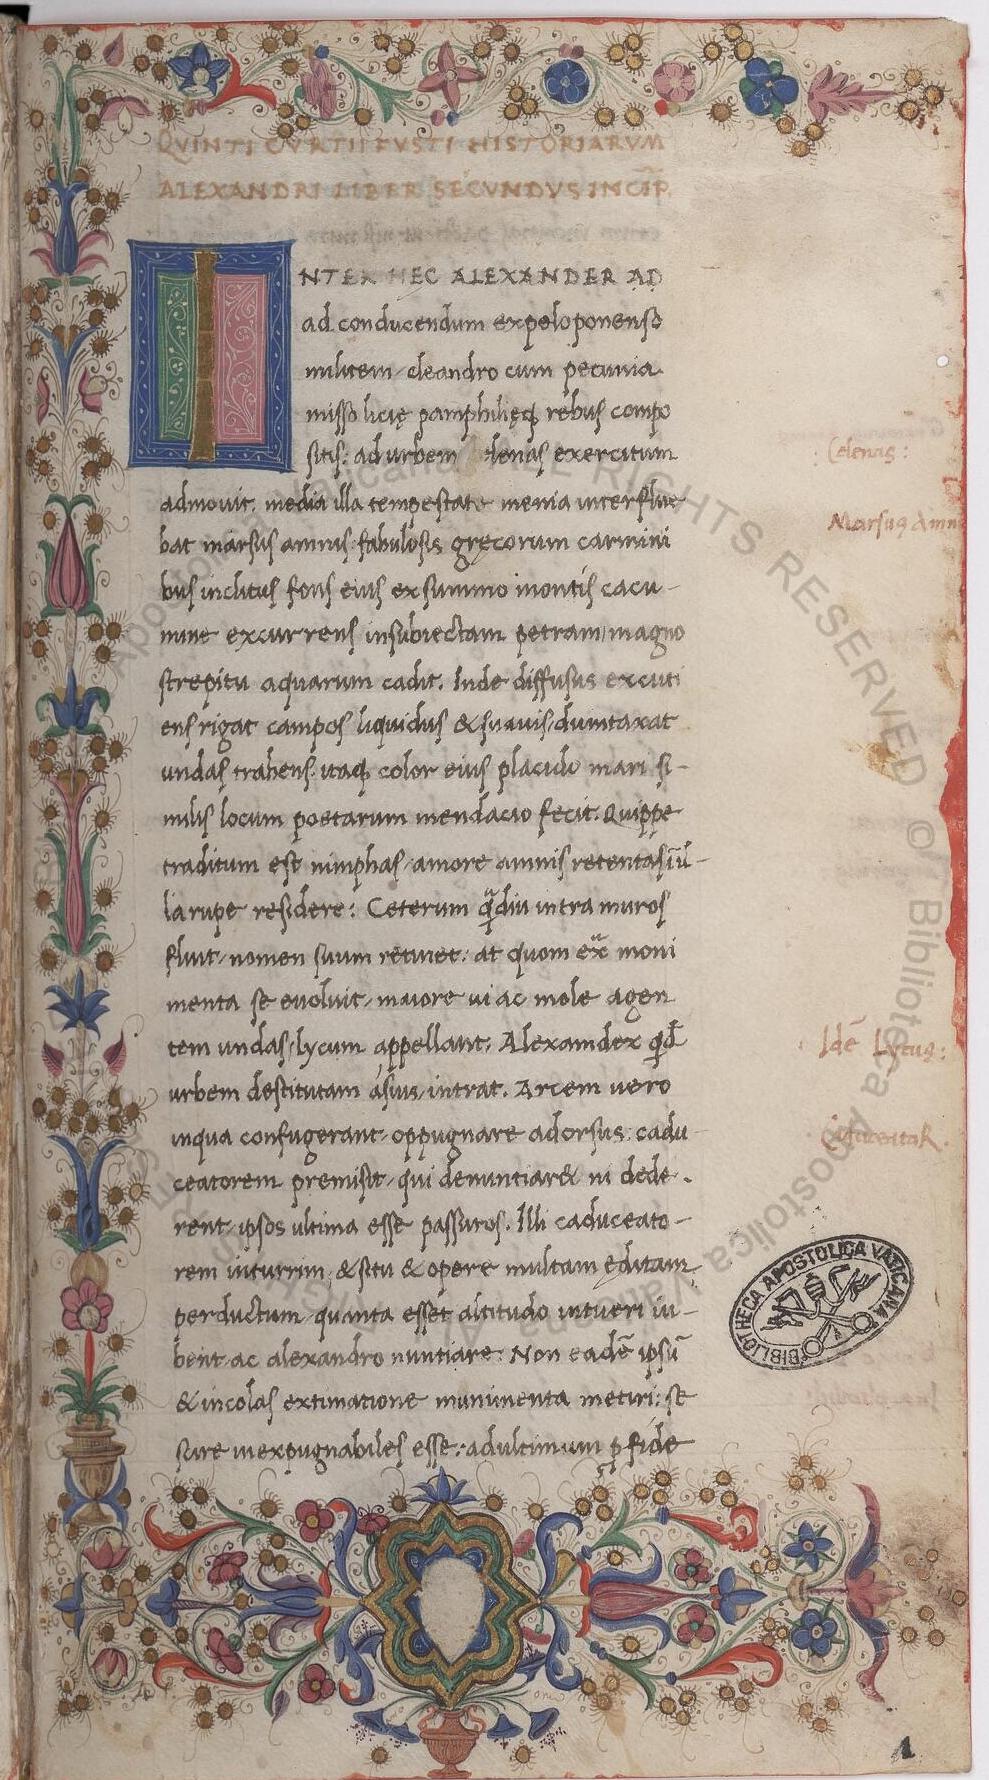 QVINTI CVRTII FVSTI HISTORIARVM
ALEXANDRI LIBER SECVNDVS INCIP.
INTER HEC ALEXANDER AD
ad conducendum expeloponenso
militem cleandro cum pecunia
misso licię pamphilięq rebus compo
sitis: ad urbem lenas exercitum
admouit. media illa tempestate menia interflue
bat marsus amnis fabulosis gręcorum carmini
bus inclitus fons eius ex summo montis cacu-
mine excurrens insubiectam petram magno
strepitu aquarum cadit. Inde diffusus excuti
ens rigat campos liquidus & suauis dumtaxat
undas trahens. itaq color eius placido mari si-
milis locum poetarum mendacio fecit. Quippe
traditum est nimphas amore amnis retentas ı̄ il-
la rupe residere: Ceterum q̄diu intra muros
fluit nomen suum retinet. at quom ex̄ moni
menta se euoluit maiore ui ac mole agen
tem undas lycum appellant: Alexander q̄d
urbem destitutam a suis intrat. Arcem uero
inqua confugerant oppugnare adorsus. cadu
ceatorem premisit qui denuntiar& ni dede-
rent ipsos ultima esse passuros. Illi caduceato-
rem inturrim & situ & opere multam editam
perductum quanta esset altitudo intueri iu-
bent ac alexandro nuntiare: Non eadē ipsū
& incolas extimatione munimenta metiri: se
scire inexpugnabiles esse: ad ultimum p̱ fide
Celenas:
Marsus Amn
Idē Lycus:
BIBLIOTHECA APOSTOLICA VATICANA
© Biblioteca Apostolica Vaticana
RIGHTS RESERVED
1